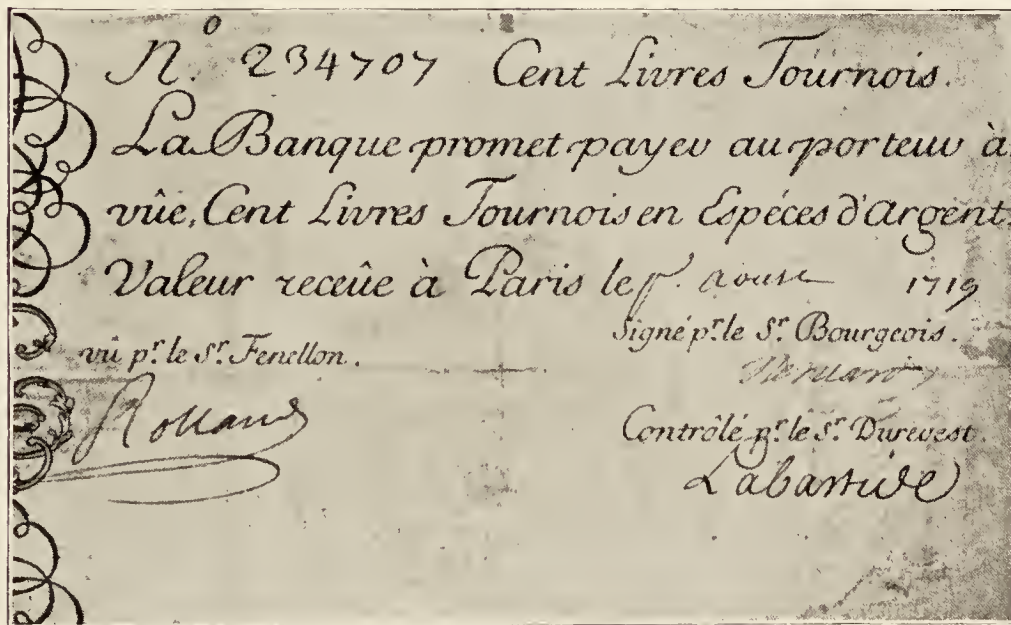 N.º 234707 Cent Livres Tournois.
La Banque promet payer au porteur à
vûe, Cent Livres Tournois en Espéces d'Argent.
Valeur receûe à Paris le 1719
vû pr. le Sr. Fenellon.
Signé pr. le Sr. Bourgeois.
Rolland
Contrôlé pr. le Sr. Durevest.
Labastide